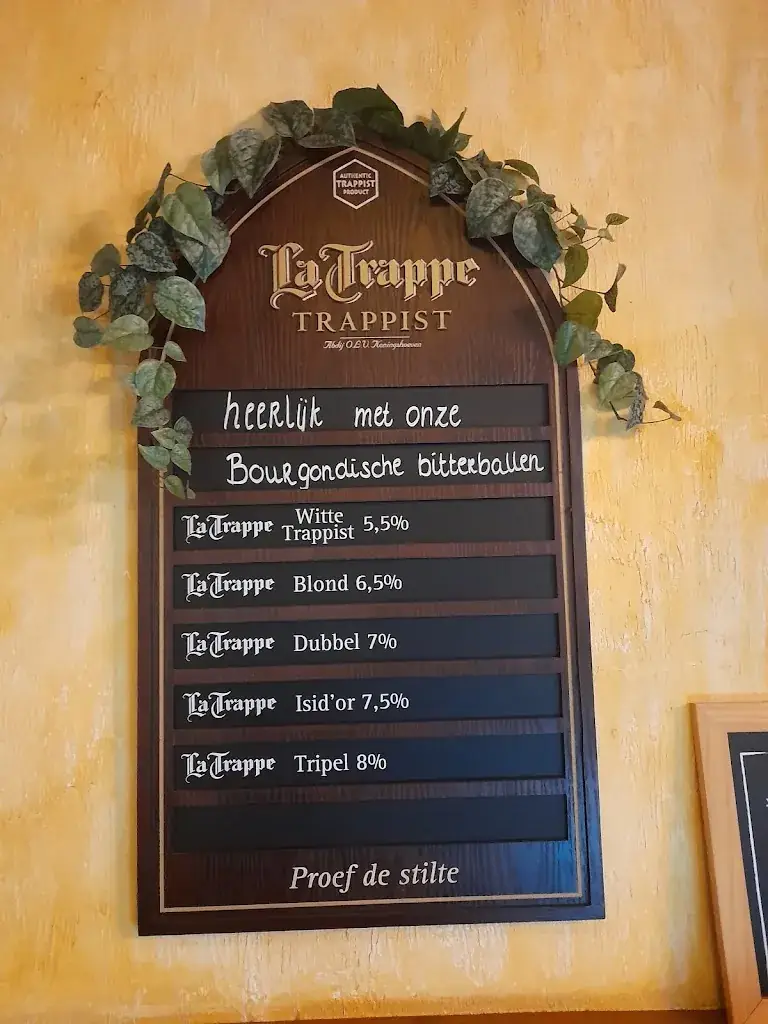 AUTHENTIC
TRAPPIST
PRODUCT
La Trappe
TRAPPIST
Abdij O.L.V. Koningshoeven
heerlijk met onze
Bourgondische bitterballen
La Trappe Witte Trappist 5,5%
La Trappe Blond 6,5%
La Trappe Dubbel 7%
La Trappe Isid'or 7,5%
La Trappe Tripel 8%
Proef de stilte